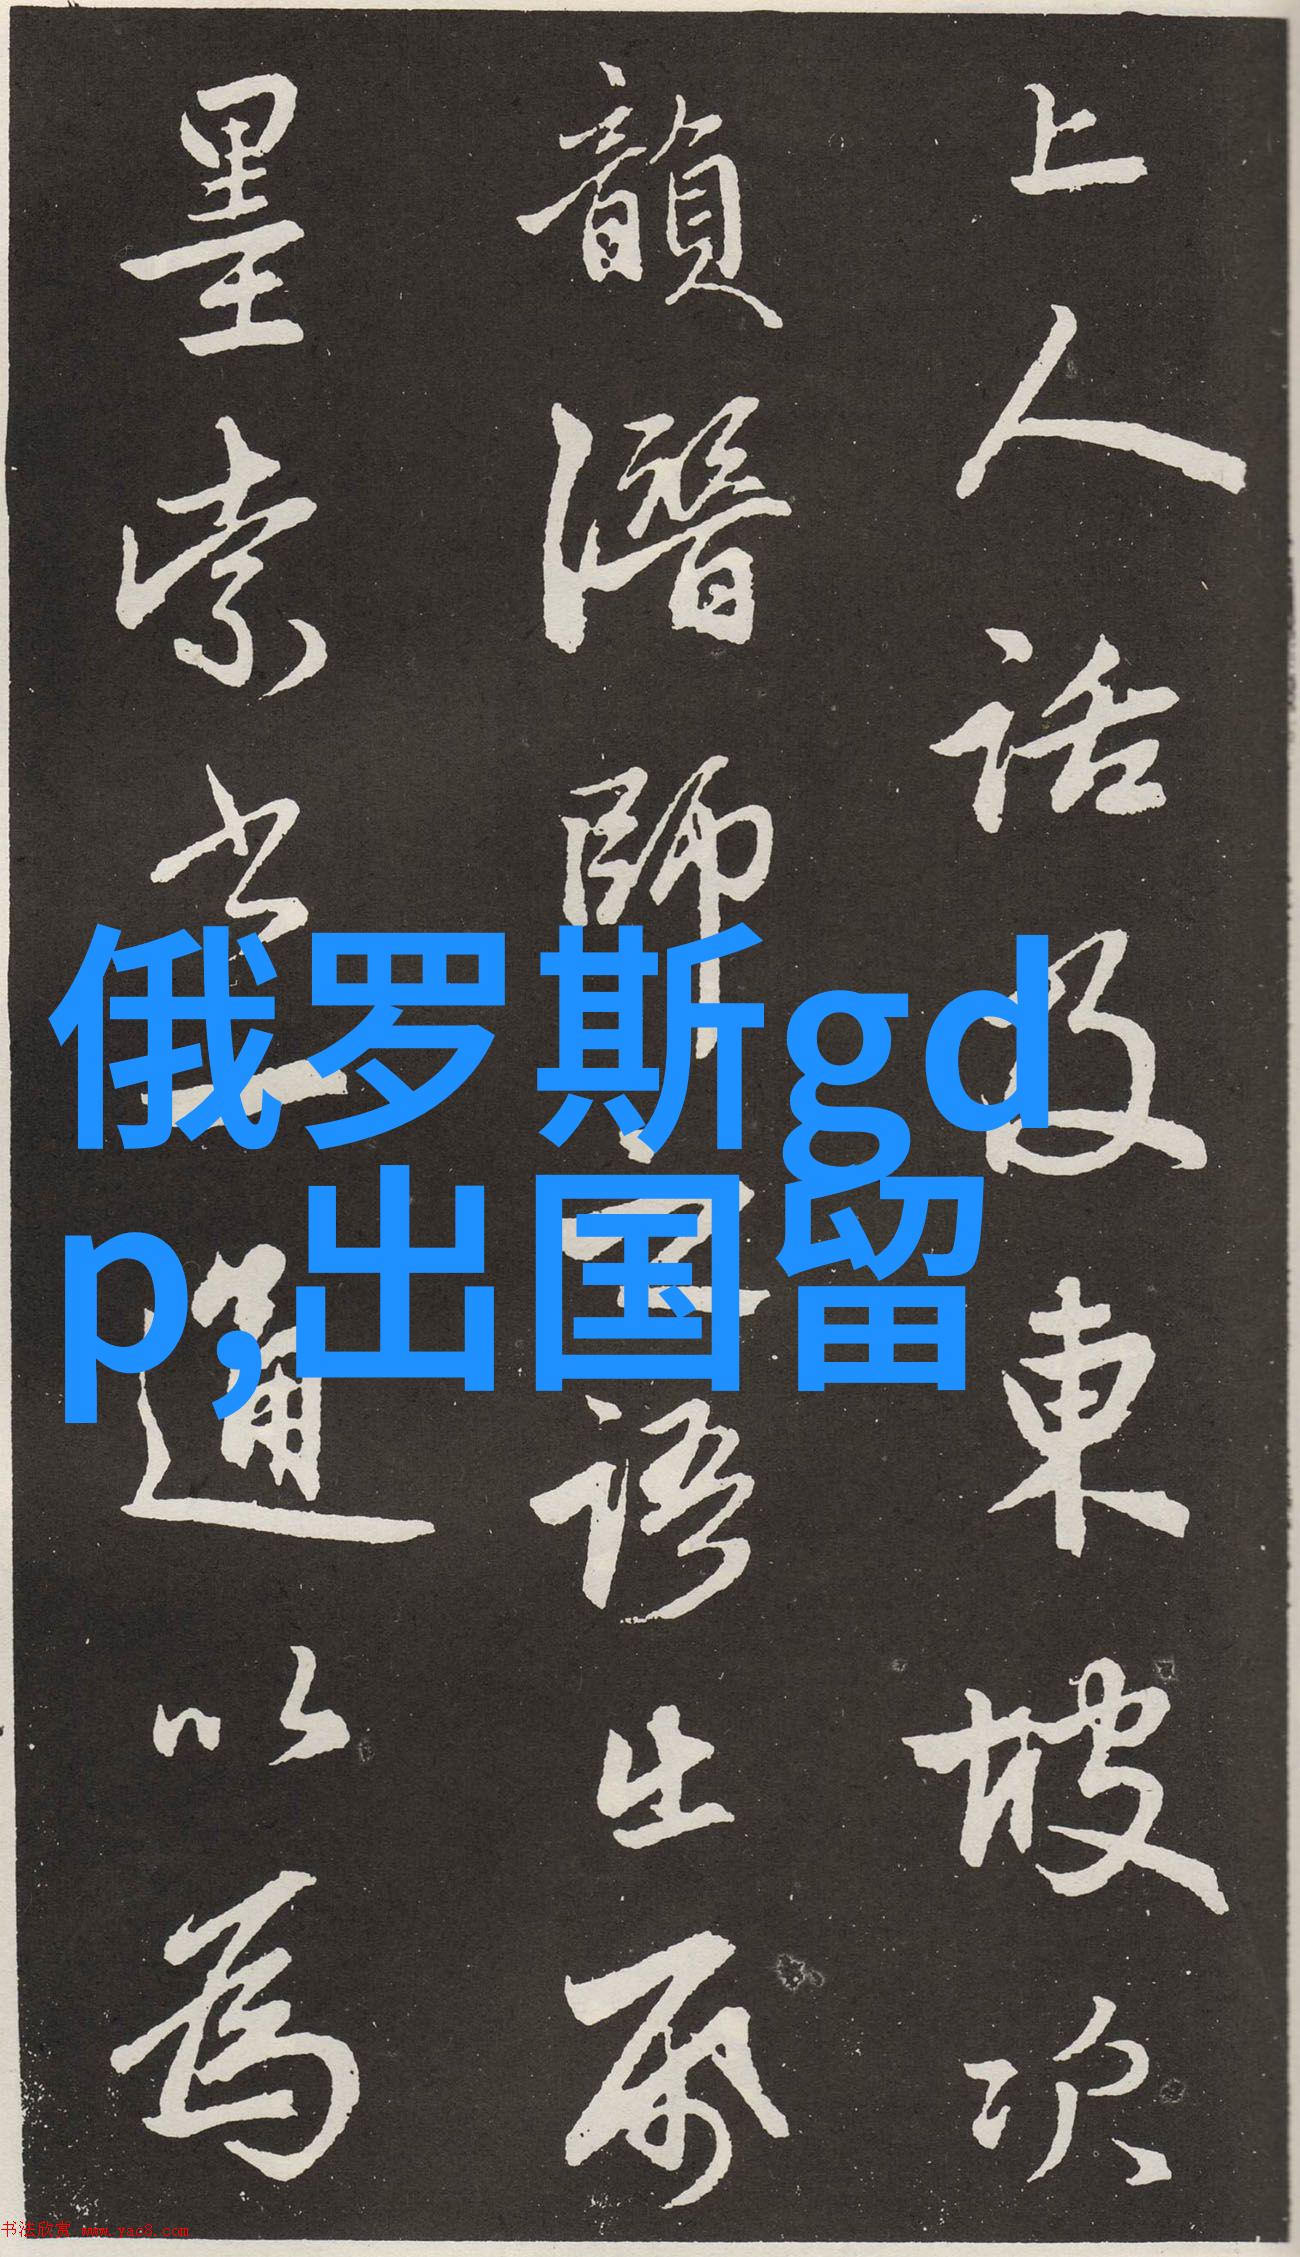 上人話及東坡次
韻潛師
語生氣
墨索書一通以爲
俄罗斯gd
p,出国留
书法欣赏 www.yac8.com